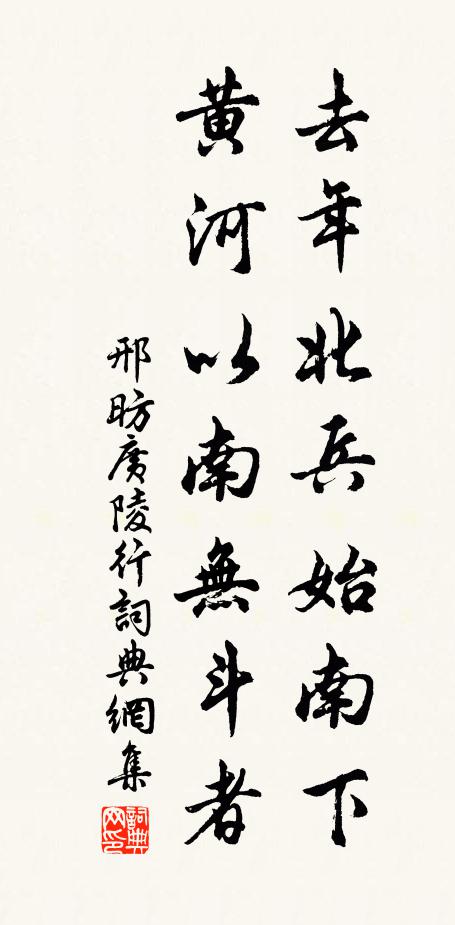 去年北兵始南下
黄河以南無斗者
邢昉廣陵行詞典網集
詞典网印